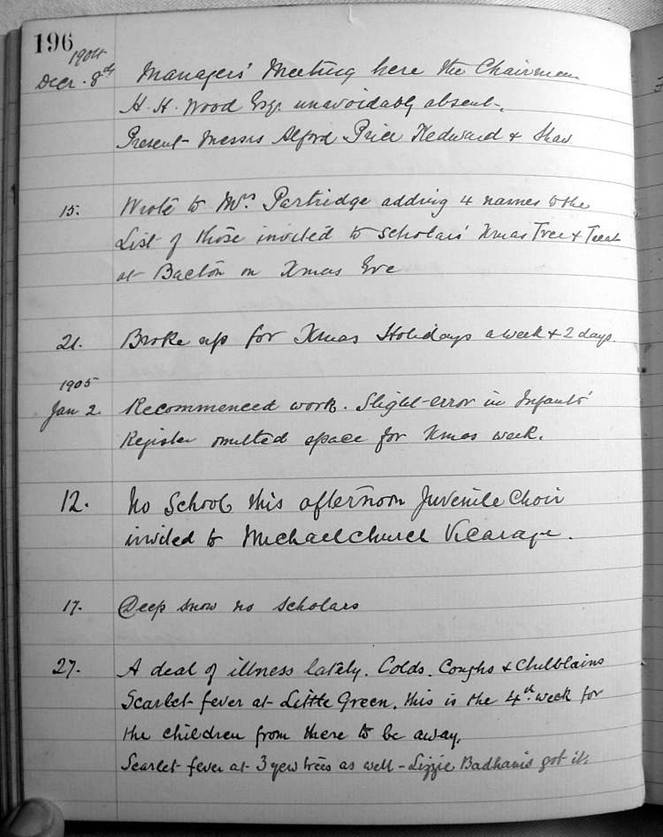 196
1904
Decr. 8th Managers' Meeting here the Chairman
H. H. Wood Esqr. unavoidably absent.
Present - Messrs Alford Price Kedward & Shaw
15. Wrote to Mrs Partridge adding 4 names to the
List of those invited to scholars' Xmas Tree & Treat
at Bacton on Xmas Eve
21. Broke up for Xmas Holidays a week & 2 days.
1905
Jan 2. Recommenced work. Slight error in Infants'
Register omitted space for Xmas week.
12. No School this afternoon Juvenile Choir
invited to Michaelchurch Vicarage.
17. Deep snow no scholars
27. A deal of illness lately. Colds. Coughs & Chilblains
Scarlet fever at Little Green. this is the 4th week for
the children from there to be away.
Scarlet fever at 3 yew trees as well - Lizzie Badham's got it.